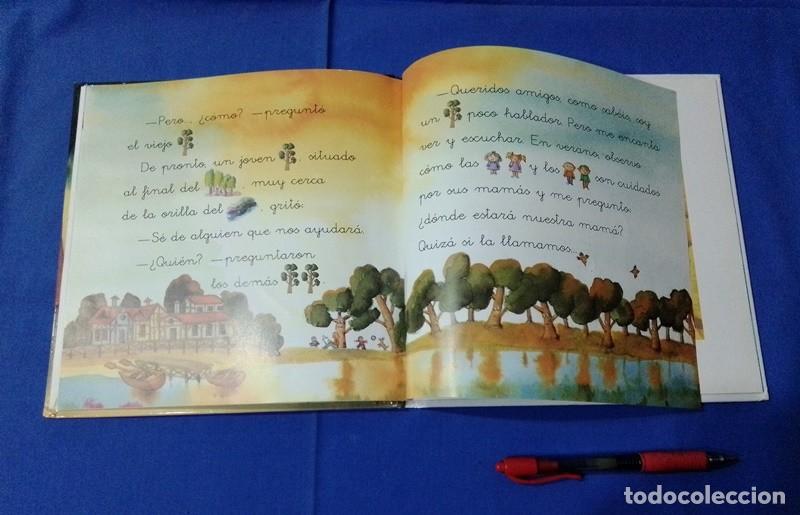 —Pero... ¿cómo? —preguntó
el viejo
De pronto, un joven , situado
al final del , muy cerca
de la orilla del , gritó:
—Sé de alguien que nos ayudará.
—¿Quién? —preguntaron
los demás .
—Queridos amigos, como sabéis, soy
un poco hablador. Pero me encanta
ver y escuchar. En verano, observo
cómo las y los son cuidados
por sus mamás y me pregunto:
¿dónde estará nuestra mamá?
Quizá si la llamamos...
todocoleccion